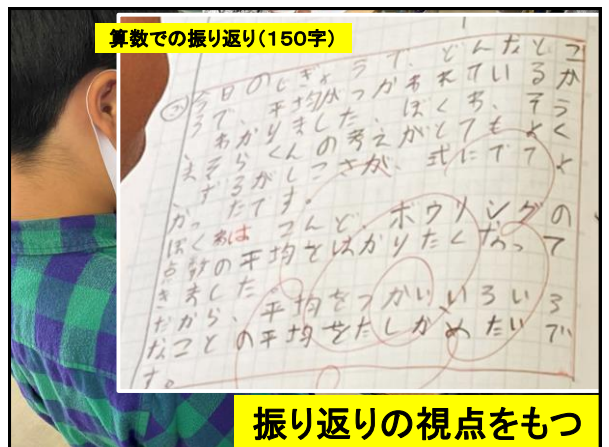 算数での振り返り（150字）
ふ 今日のじぎょうで、どんなとこ
ろで、平均がつかわれているか
わかりました。ぼくわ、そう
まそらくんの考えがとてもよく
ずるがしこさが、式にでてよ
かったです。
ぼくは こんど、ボウリングの
点数の平均をはかりたくなって
きました。
だから、平均をつかいいろいろ
なことの平均をたしかめたいで
す。
振り返りの視点をもつ